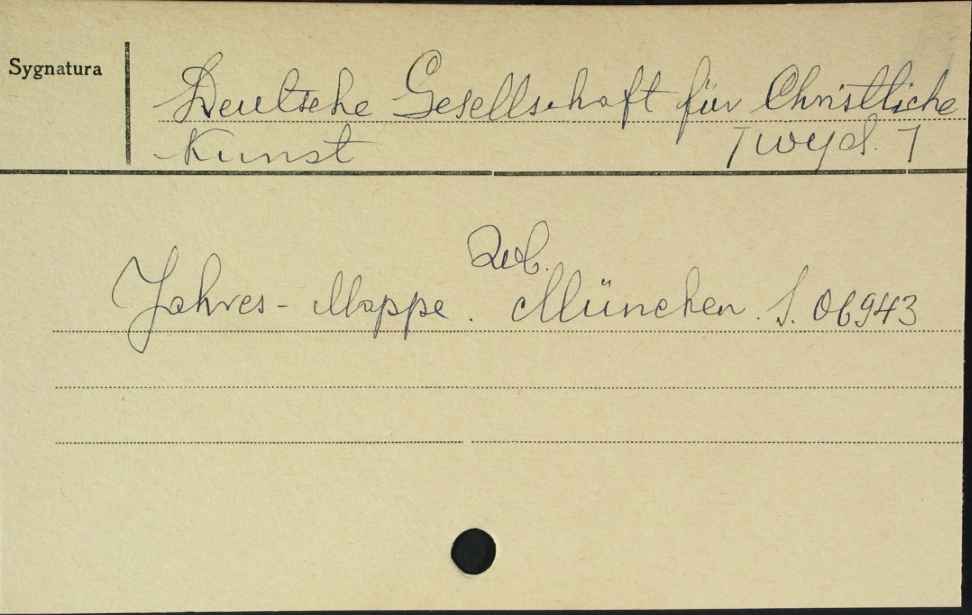 Sygnatura
Deutsche Gesellschaft für Christliche
Kunst [wyd.]
Zeb.
Jahres-Mappe. München. S. 06943